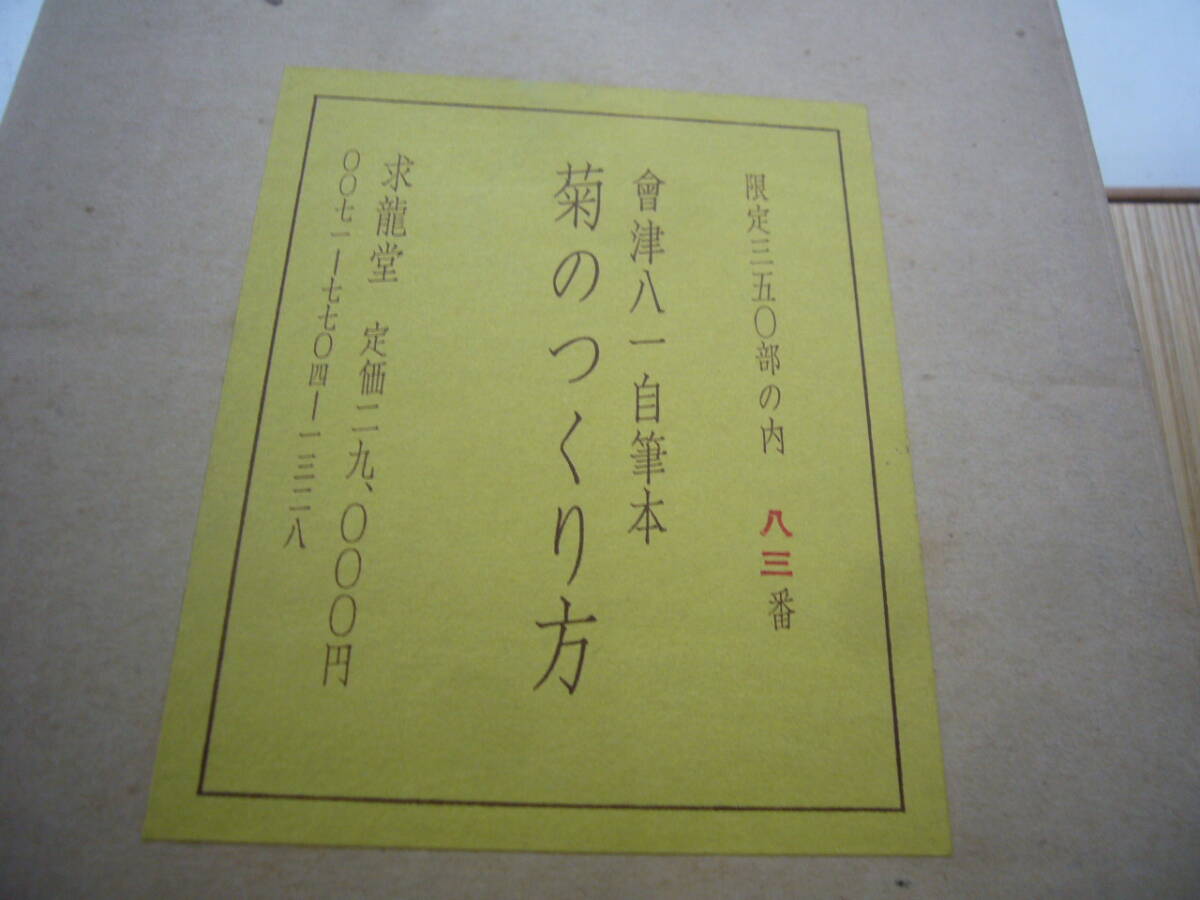 限定三五〇部の内 八三番
會津八一自筆本
菊のつくり方
求龍堂 定価二九、〇〇〇円
〇〇七一―七七〇四―一三二八